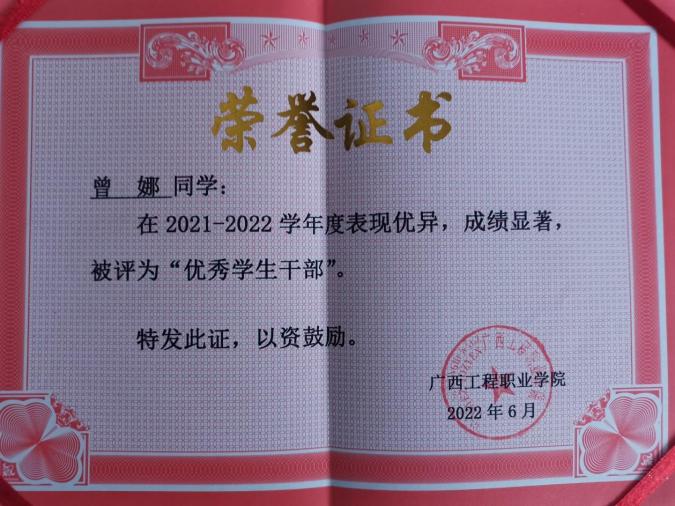 荣誉证书
曾 娜 同学：
在 2021-2022 学年度表现优异，成绩显著，
被评为“优秀学生干部”。
特发此证，以资鼓励。
广西工程职业学院
2022 年 6 月